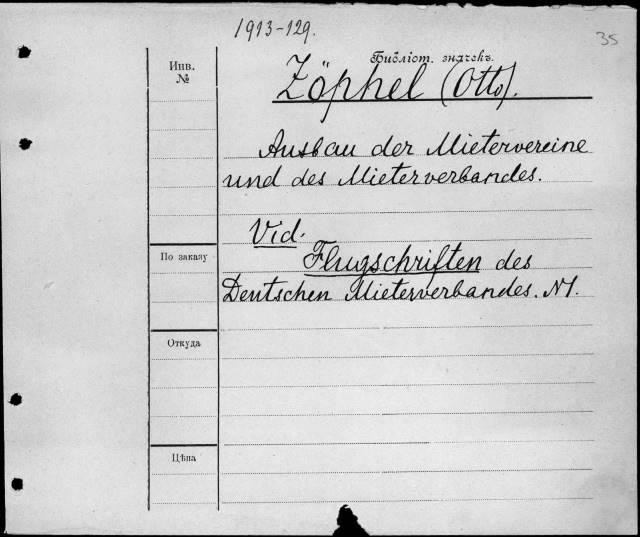 1913-129.
35
Инв.
№
Библіот. значекъ.
Zöphel (Otto).
Ausbau der Mietervereine
und des Mieterverbandes.
Vid.
По заказу
Flugschriften des
Deutschen Mieterverbandes. N1.
Откуда
Цѣна